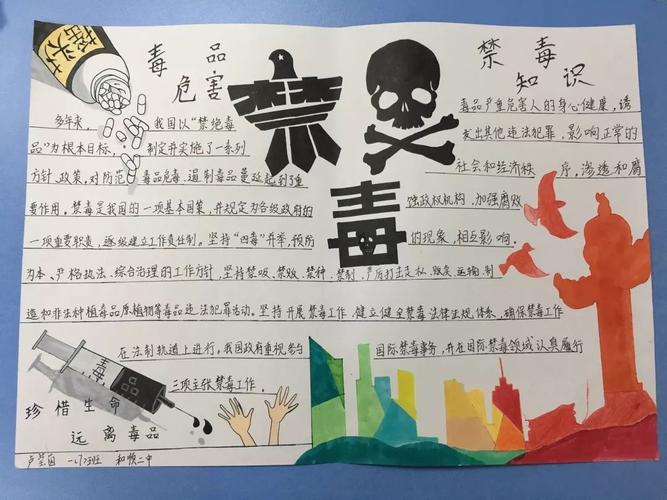 毒品
危害
多年来， 我国以“禁绝毒
品”为根本目标， 制定并实施了一系列
方针、政策，对防范 毒品危毒、遏制毒品蔓延起到了重
要作用。禁毒是我国的一项基本国策，并规定为各级政府的
一项重要职责，逐级建立工作责任制。坚持“四毒”并举，预防
为本、严格执法、综合治理的工作方针，坚持禁吸、禁贩、禁种、禁制，严厉打击走私、贩卖、运输、制
造和非法种植毒品原植物等毒品违法犯罪活动。坚持开展禁毒工作，健立健全禁毒法律法规体系，确保禁毒工作
在法制轨道上进行。我国政府重视参与 国际禁毒事务，并在国际禁毒领域认真履行
三项主张禁毒工作。
禁
毒
禁毒
知识
毒品严重危害人的身心健康，诱
发出其他违法犯罪，影响正常的
社会和经济秩 序。渗透和腐
蚀政权机构，加强腐败
的现象，相互影响。
毒品
珍惜生命
远离毒品
一(7)班 和顺二中